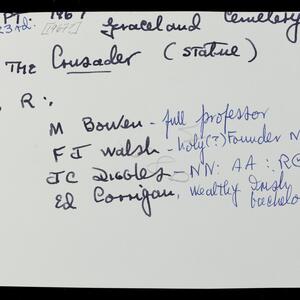 PT. 1967 Graceland Cemetery
23rd. [1967?]
THE Crusader (statue)
, R:
M Bowen - full professor
F J Walsh - holy(?) Founder N
JC Diggles - NN: AA: RC
Ed Corrigan, wealthy Irish
bachelo